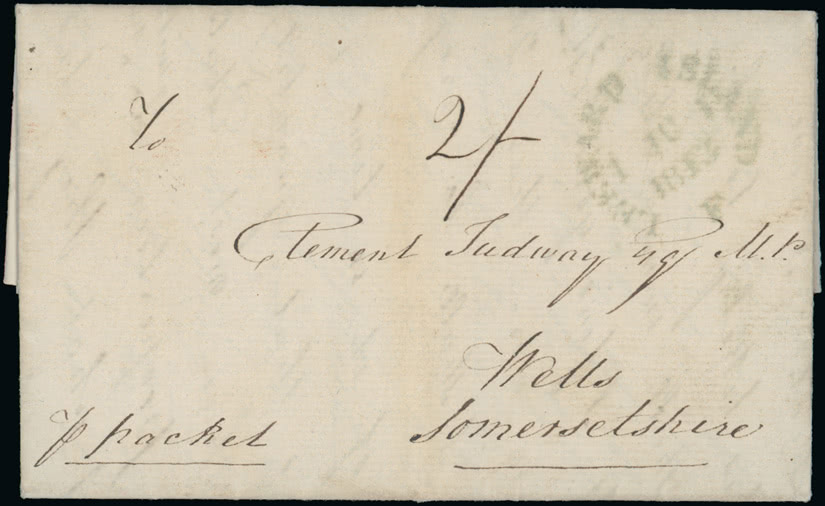 To
2/-
Clement Tudway Esq M.P.
Wells
Somersetshire
p packet
LEEWARD ISLAND F
10
1812